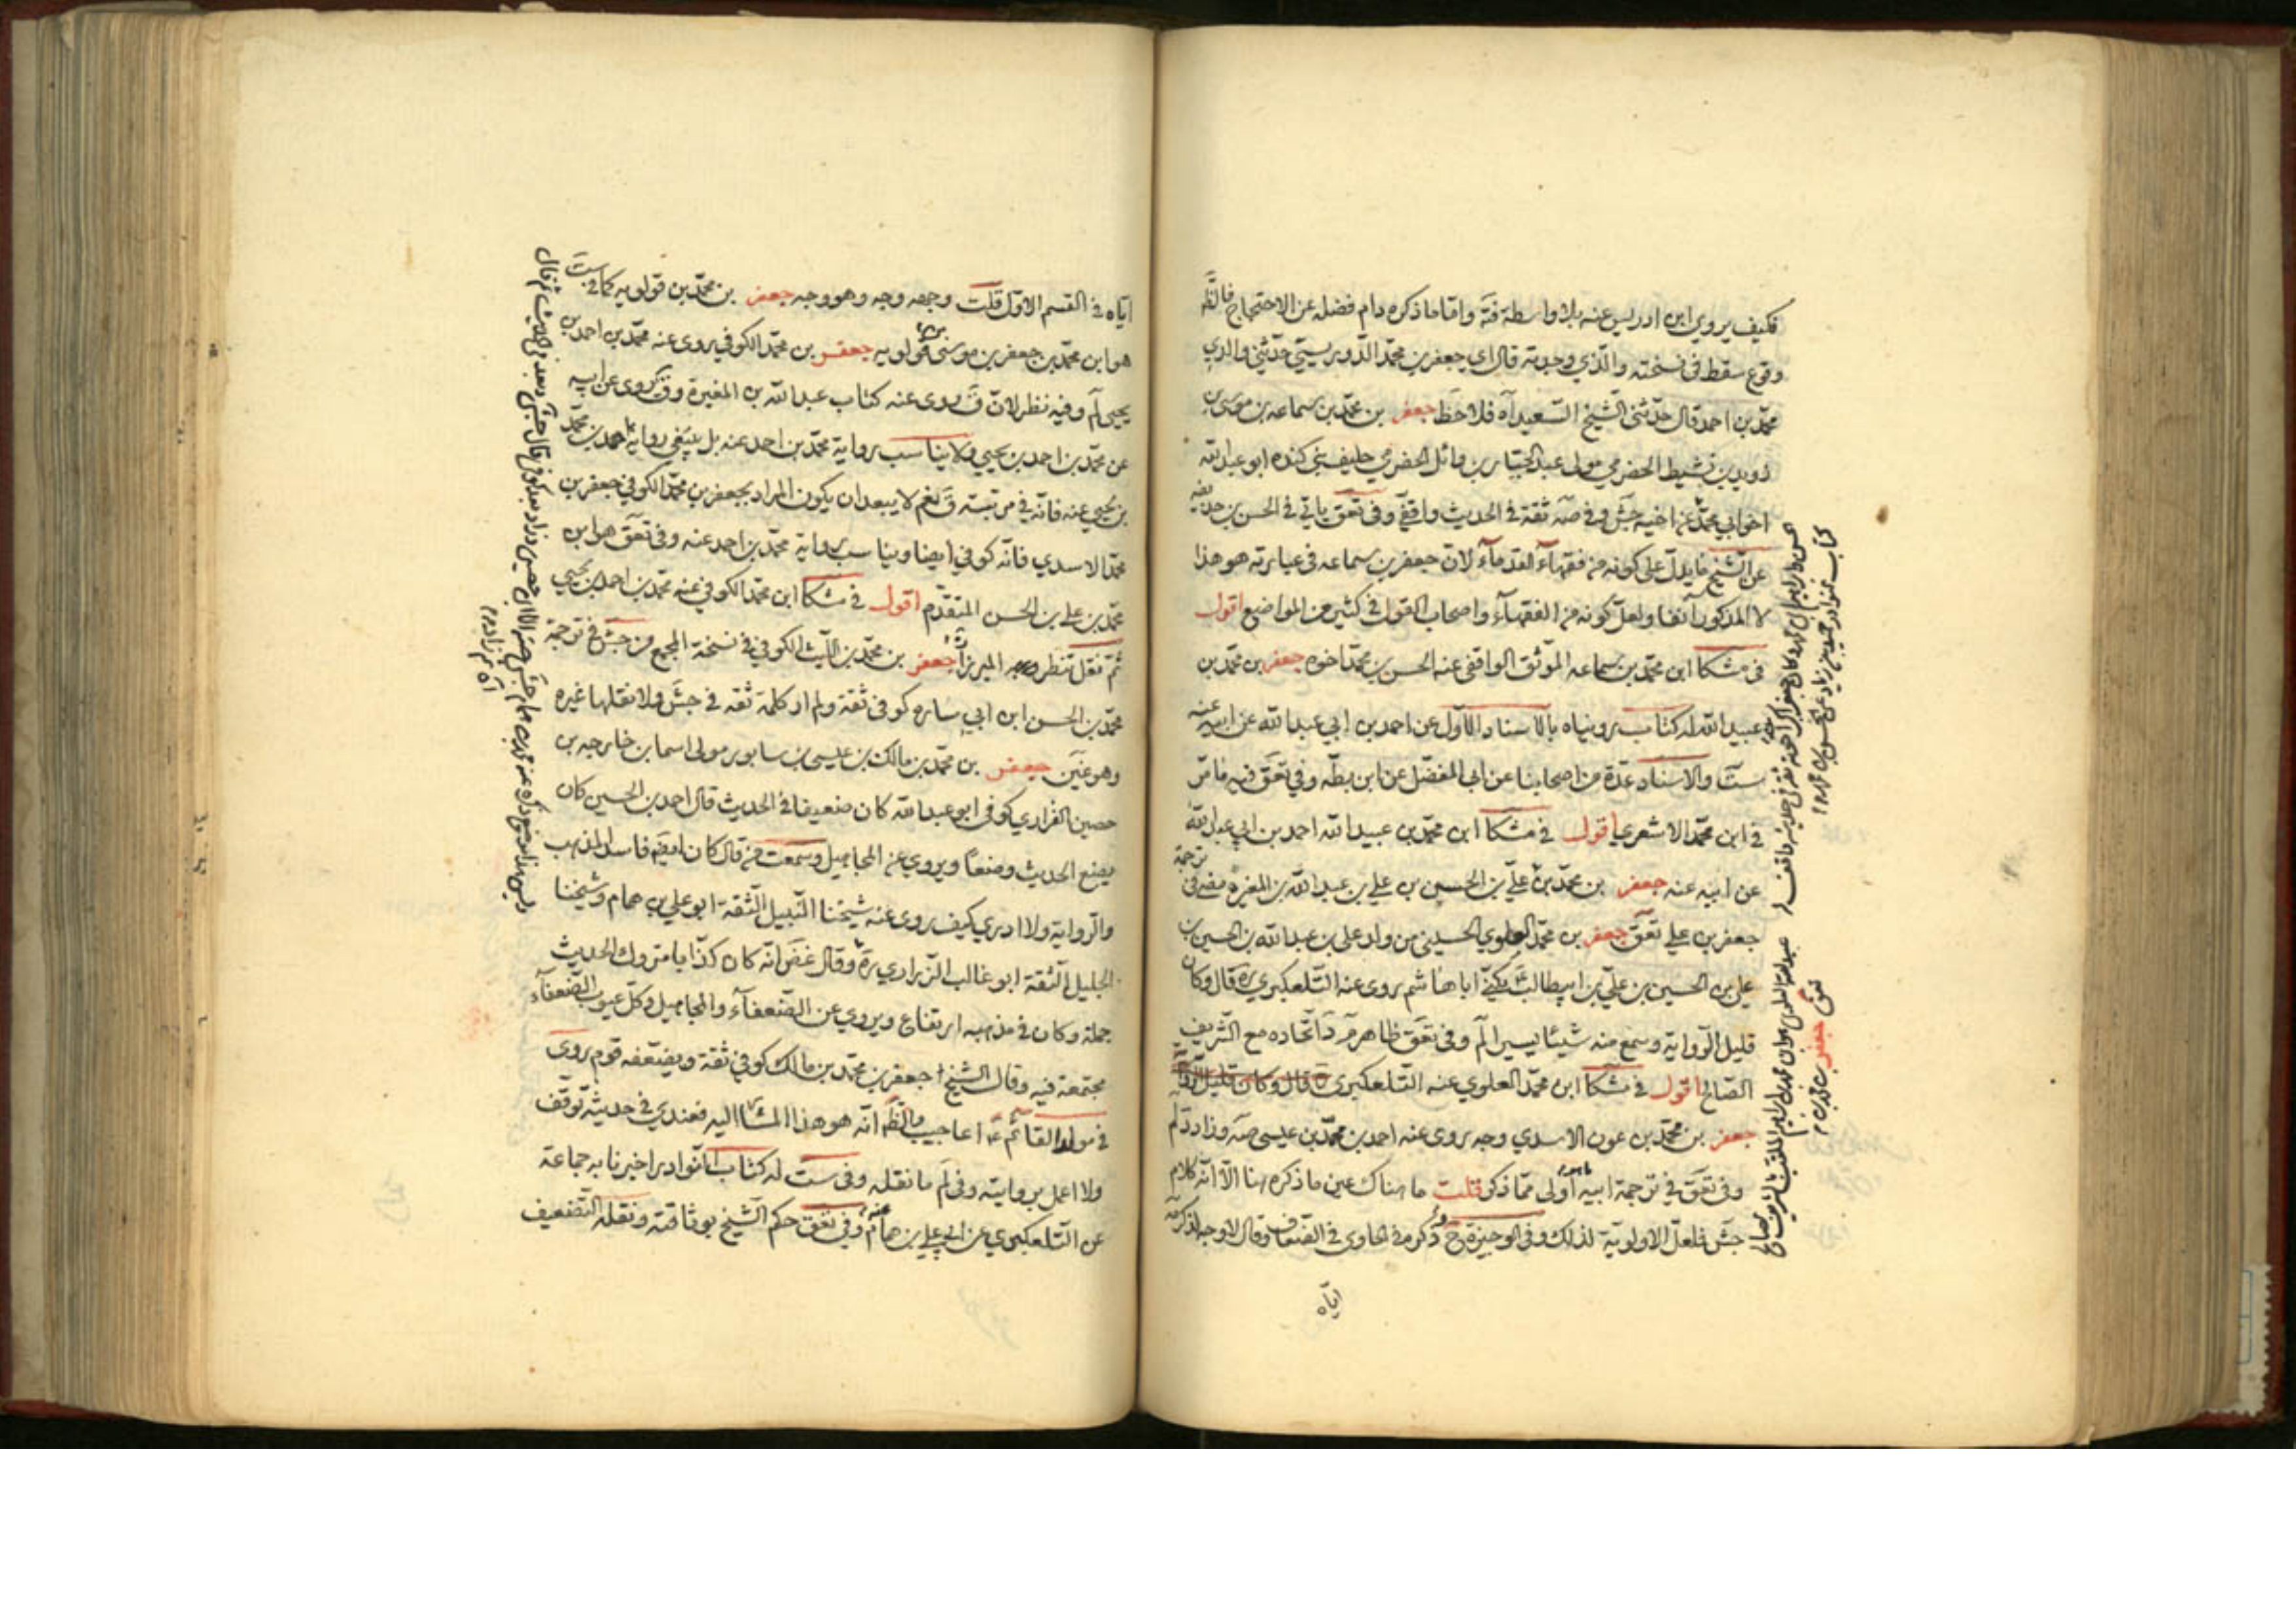 فكيف يروي ابن ادريس عنه بلا واسطة فتة واما ما ذكره دام فضله عن الاحتجاج فالظ
وقوع سقط في نسخته والذي وجدته قال اي جعفر بن محمد الدوريستي حدثني والدي
محمد بن احمد قال حدثني الشيخ السعيد آه فلاحظ جعفر بن محمد بن سماعه بن موسى بن
رويد بن نشيط الحضرمي مولى عبد الجبار بن وائل الحضرمي حليف بني كنده ابو عبد الله
اخو ابي محمد من اخيه جش وفي صه ثقة في الحديث واقفي وفي تعق ياتي في الحسن بن حذيفه
عن الشيخ ما يدل على كونه من فقهاء القدماء لان جعفر بن سماعه في عبارته هو هذا
لا المذكور آنفا ولعل كونه من الفقهاء واصحاب القول في كثير من المواضع اقول
في مشكا ابن محمد بن سماعه الموثق الواقفي عنه الحسن بن محمد اخوه جعفر بن محمد بن
عبيد الله له كتاب رويناه بالاسناد الاول عن احمد بن ابي عبد الله عن ابيه عنه
ست والاسناد عدة من اصحابنا عن ابي المفضل عن ابن بطه وفي تعق فيه ما مر
في ابن محمد الاشعري اقول في مشكا ابن محمد بن عبيد الله احمد بن ابي عبد الله
عن ابيه عنه جعفر بن محمد بن علي بن الحسين بن علي بن عبد الله بن المغيرة مضى في ترجمة
جعفر بن علي تعق جعفر بن محمد العلوي الحسيني من ولد علي بن عبد الله بن الحسين بن
علي بن الحسين بن علي بن ابيطالب يكنى ابا هاشم روى عنه التلعكبري ره قال وكان
قليل الرواية وسمع منه شيئا يسيرا لم وفي تعق ظاهر اتحاده مع الشريف
الصالح اقول في مشكا ابن محمد العلوي عنه التلعكبري قال وكان قليل الرواية
جعفر بن محمد بن عون الاسدي وجه روى عنه احمد بن محمد بن عيسى صه وزاد د لم
وفي تعق في ترجمة ابيه اولى مما ذكر قلت ما هناك عين ما ذكره هنا الا انه كلام
جش فلعل الاولوية لذلك وفي الوجيزة ح وذكره في الحاوي في الضعاف وقال لا وجه لذكره
اياه
تعق جعفر بن محمد بن
اياه في القسم الاول قلت وجهه وجه وهو وجه جعفر بن محمد بن قولويه كما في ست
هو ابن محمد بن جعفر بن موسى بن قولويه جعفر بن محمد الكوفي يروى عنه محمد بن احمد بن
يحيى لم وفيه نظر لان ق روى عنه كتاب عبد الله بن المغيرة وق يروى عن ابيه
عن محمد بن احمد بن يحيى ولا يناسب رواية محمد بن احمد عنه بل ينبغي رواية احمد بن محمد
بن يحيى عنه فانه في مرتبته ق نعم لا يبعد ان يكون المراد بجعفر بن محمد الكوفي جعفر بن
محمد الاسدي فانه كوفي ايضا ويناسب رواية محمد بن احمد عنه وفي تعق هو ابن
محمد بن علي بن الحسن المتقدم اقول في مشكا ابن محمد الكوفي عنه محمد بن احمد بن يحيى
ثم نقل تنظر الميرزا جعفر بن محمد بن الليث الكوفي في نسخة المجمع من جش في ترجمة
محمد بن الحسن ابن ابي ساره كوفي ثقة ولم ار كلمة ثقه في جش ولا نقلها غيره
وهو غين جعفر بن محمد بن مالك بن عيسى بن سابور مولى اسما بن خارجه بن
حصين الفزاري كوفي ابو عبد الله كان ضعيفا في الحديث قال احمد بن الحسين كان
يضع الحديث وضعا ويروي عن المجاهيل وسمعت من قال كان ايضه فاسد المذهب
والرواية ولا ادري كيف روى عنه شيخنا النبيل الثقة ابو علي بن همام وشيخنا
الجليل الثقة ابو غالب الزراري ره وقال غض انه كان كذابا متروك الحديث
جملة وكان في مذهبه ارتفاع ويروي عن الضعفاء والمجاهيل وكل عيوب الضعفاء
مجتمعة فيه وقال الشيخ جعفر بن محمد بن مالك كوفي ثقة ويضعفه قوم روى
في مولد القائم ع اعاجيب والظ انه هو هذا المشا اليه فعندي في حديثه توقف
ولا اعمل بروايته وفي لم ما نقله وفي ست له كتاب النوادر اخبرنا به جماعة
عن التلعكبري عن ابي علي بن همام عنه وفي تعق حكم الشيخ بوثاقته ونقله التضعيف